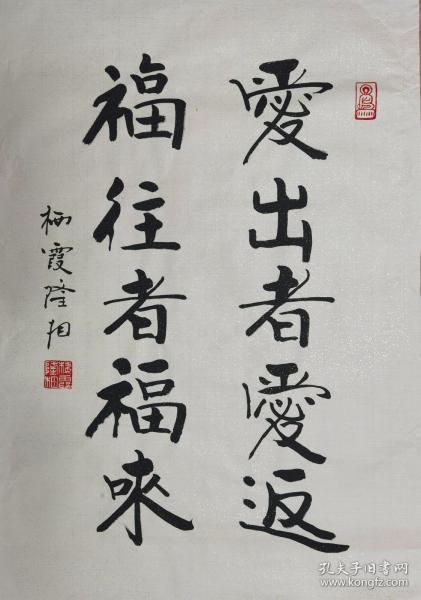 愛出者愛返
福往者福來
栖霞隆相
孔夫子旧书网
www.kongfz.com